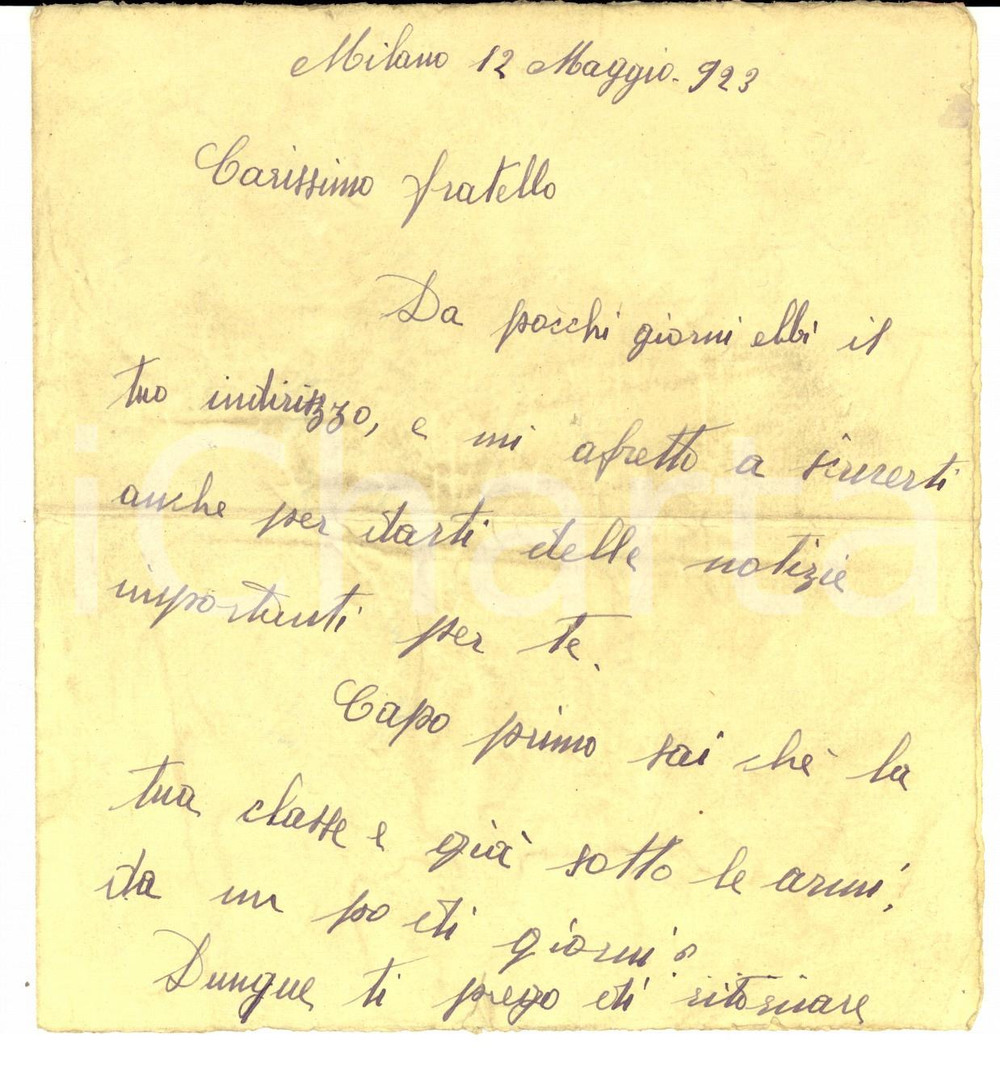 Milano 12 Maggio. 923
Carissimo fratello
Da pocchi giorni ebbi il
tuo indirizzo, e mi afretto a scriverti
anche per darti delle notizie
importanti per te.
Capo primo sai chè la
tua classe e già sotto le armi,
da un po di giorni.
Dunque ti prego di ritornare
iCharta